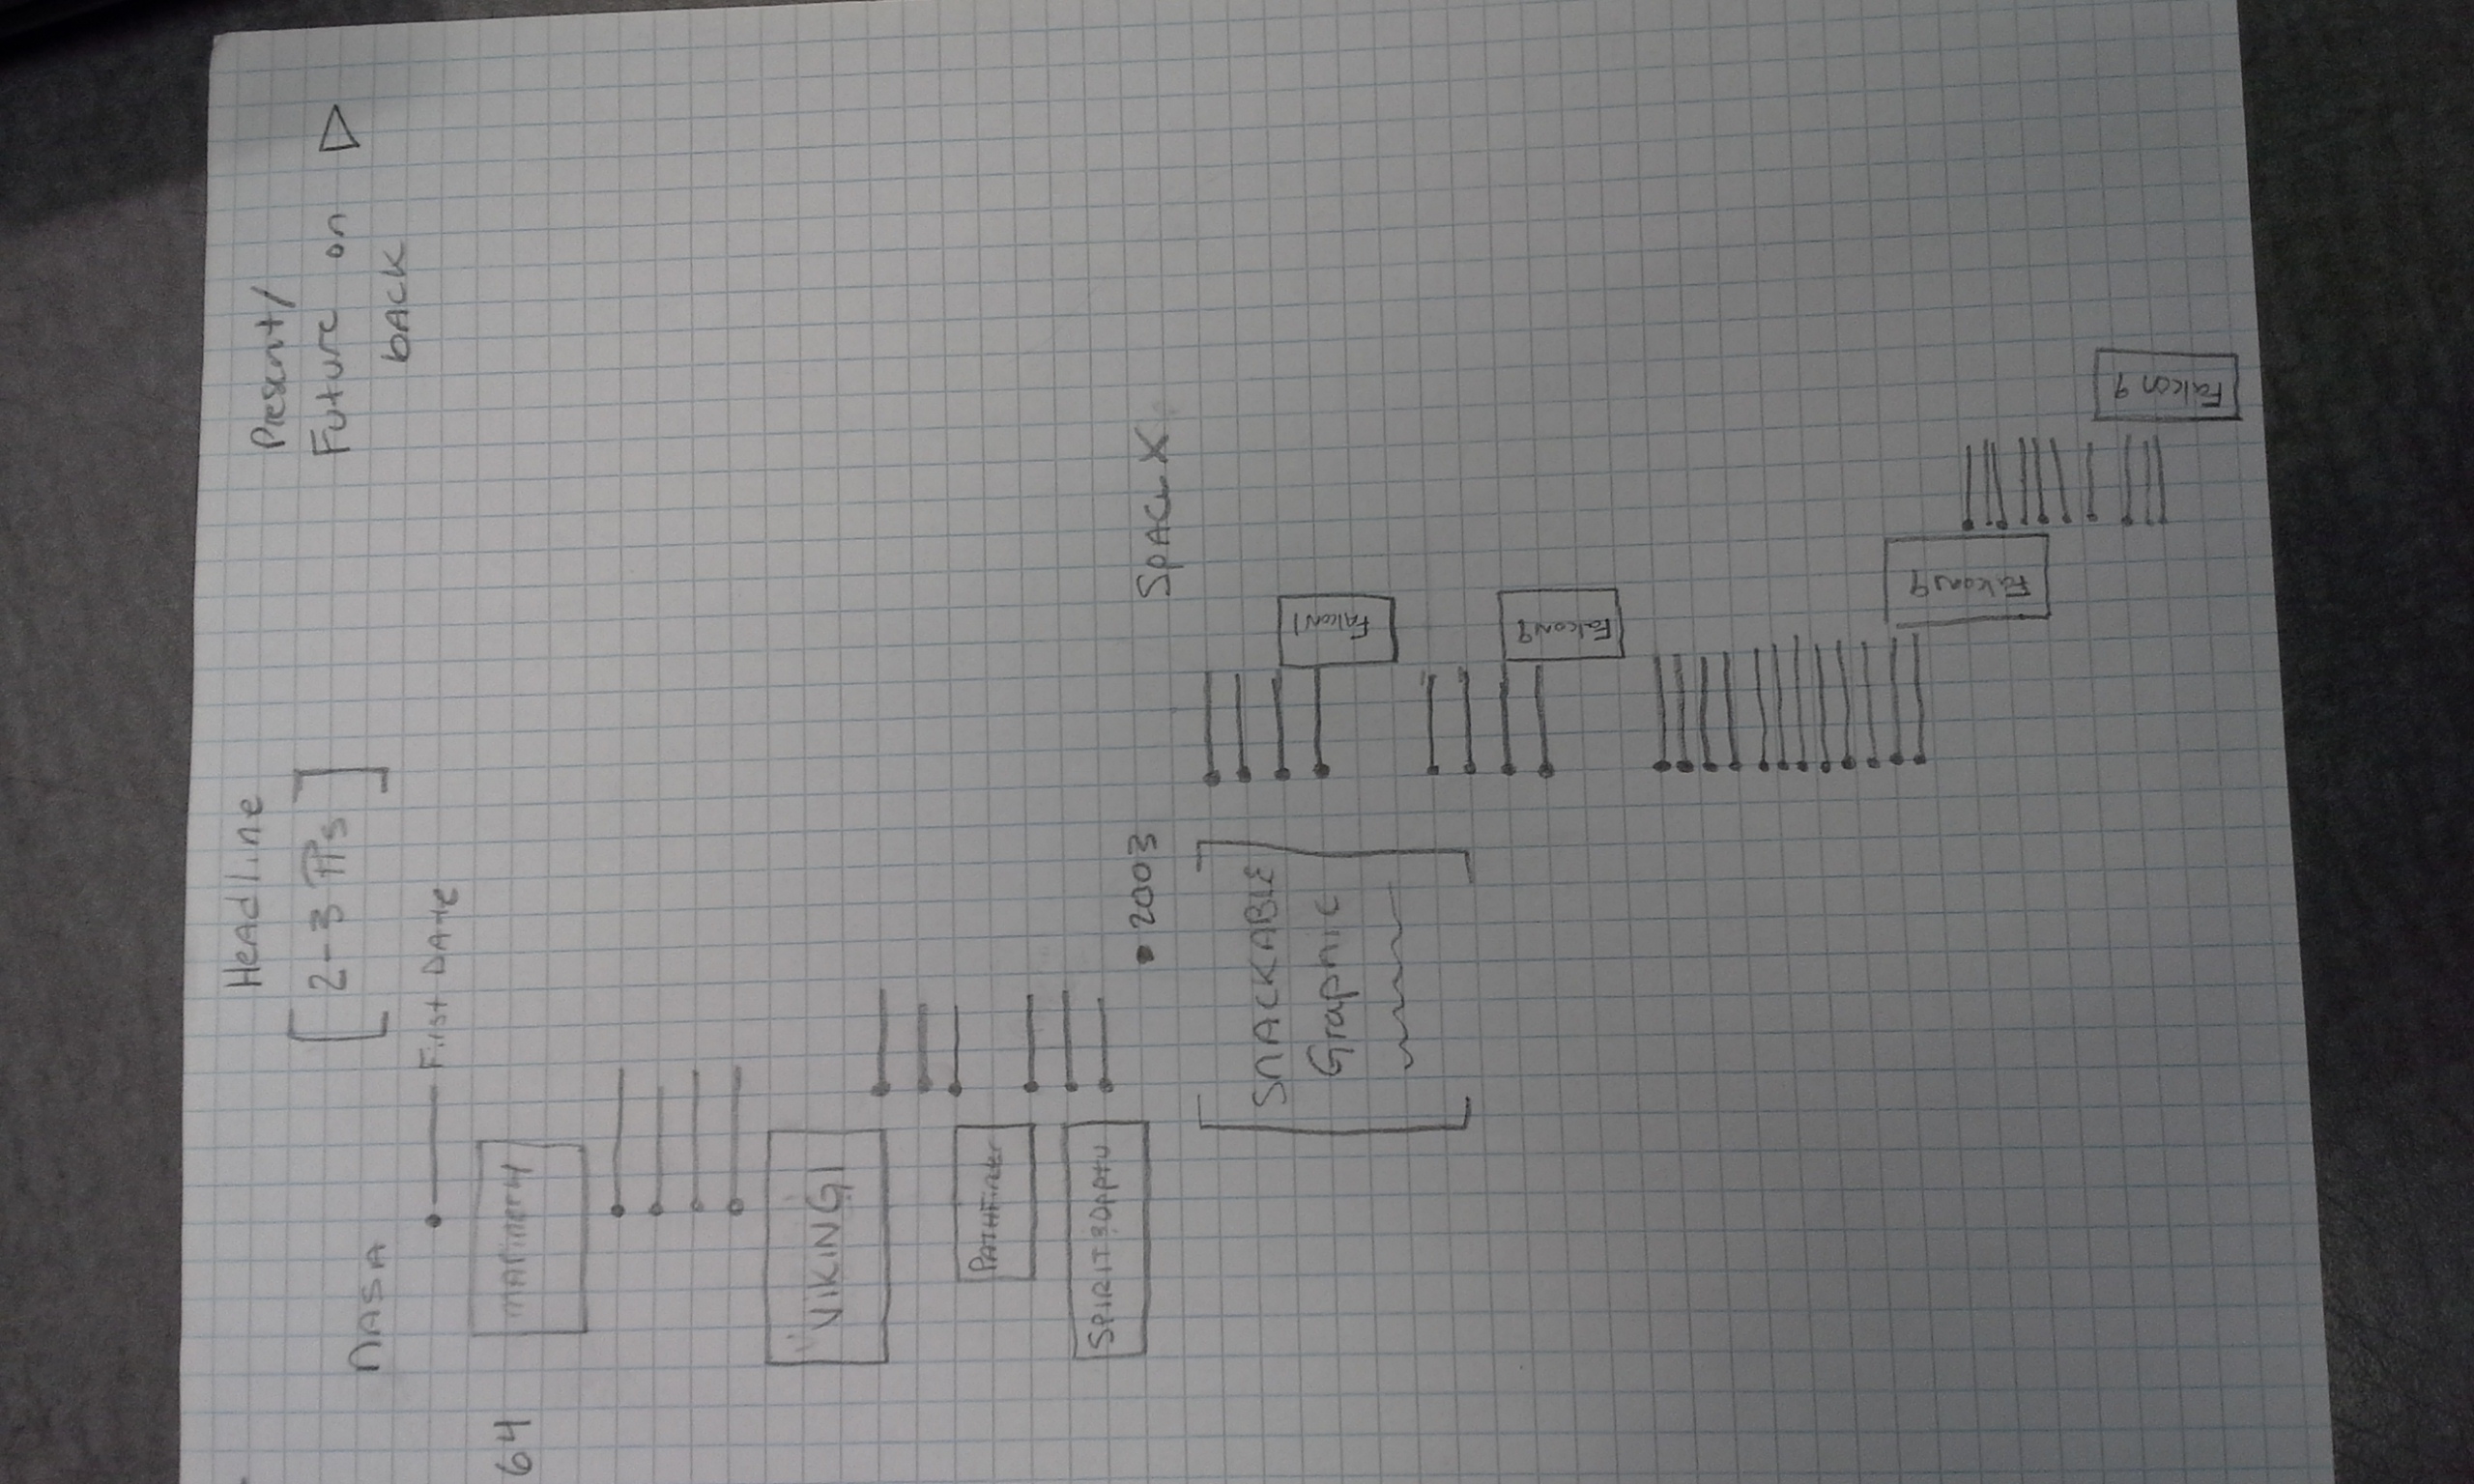 Headline
[2-3 PPs]
Present/
Future on
back
NASA
First Date
64
Mariner 4
VIKING 1
Pathfinder
SPIRIT & Opptu
• 2003
Space X
SNACKABLE
Graphic
Falcon 1
Falcon 9
Falcon 9
Falcon 9